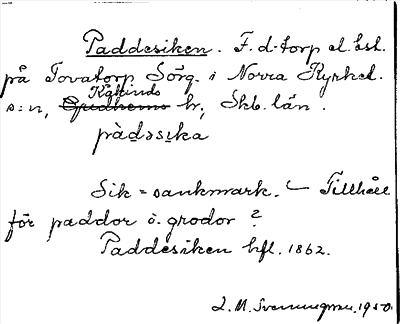 Paddesiken. F. d. torp el. bst.
på Tovatorp Sörg. i Norra Kyrket.
Kåkinds
s:n, Gudhems hr, Skb. län.
pàdəsika
Sik = sankmark. – Tillhåll
för paddor o. grodor?
Paddesiken hfl. 1862.
L. M. Svenungsson. 1950.